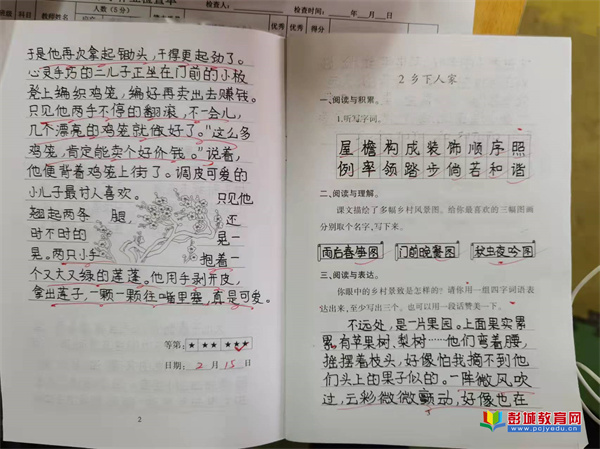 检查人:
检查时间:
年
月
日
班级
科目
教师姓名
人数(5分)
优秀
优秀
得分
于是他再次拿起锄头,干得更起劲了。
心灵手巧的二儿子正坐在门前的小板
凳上编织鸡笼,编好再卖出去赚钱。
只见他两手不停的翻滚,不一会儿,
几个漂亮的鸡笼就做好了。"这么多
鸡笼,肯定能卖个好价钱。"说着,
他便背着鸡笼上街了。调皮可爱的
小儿子最讨人喜欢。 只见他
翘起两条 腿, 还
时不时的 晃一
晃。两只小手 抱着一
个又大又绿的莲蓬。他用手剥开皮,
拿出莲子,一颗一颗往嘴里塞,真是可爱。
等第:★ ★★ ★★★
日期: 2 月 15 日
2
2 乡下人家
一、阅读与积累。
1.听写字词。
屋檐构成装饰顺序照
例率领踏步倘若和谐
二、阅读与理解。
课文描绘了多幅乡村风景图。给你最喜欢的三幅图画
分别取个名字,写下来。
雨后春笋图 门前晚餐图 秋虫夜吟图
三、阅读与表达。
你眼中的乡村景致是怎样的?请你用一组四字词语表
达出来,至少写出三个。也可以用一段话赞美一下。
不远处,是一片果园。上面果实累
累,有苹果树、梨树……他们弯着腰,
摇摆着枝头,好像怕我摘不到他
们头上的果子似的。一阵微风吹
过,云彩微微颤动,好像也在
彭城教育网
www.pcjyedu.cn